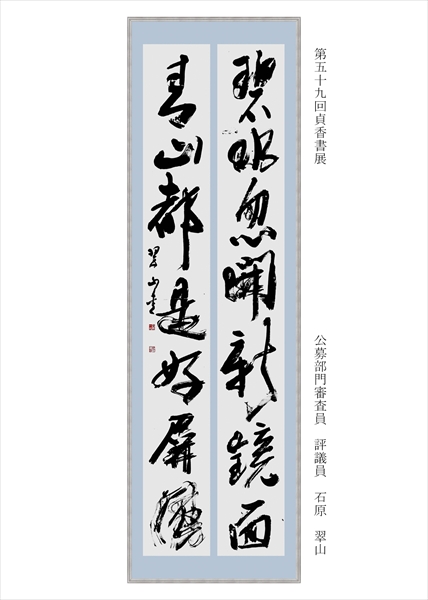 第五十九回貞香書展
公募部門審査員　評議員　石原　翠山
碧忽開新鏡面
青山都是好屏風
翠山書